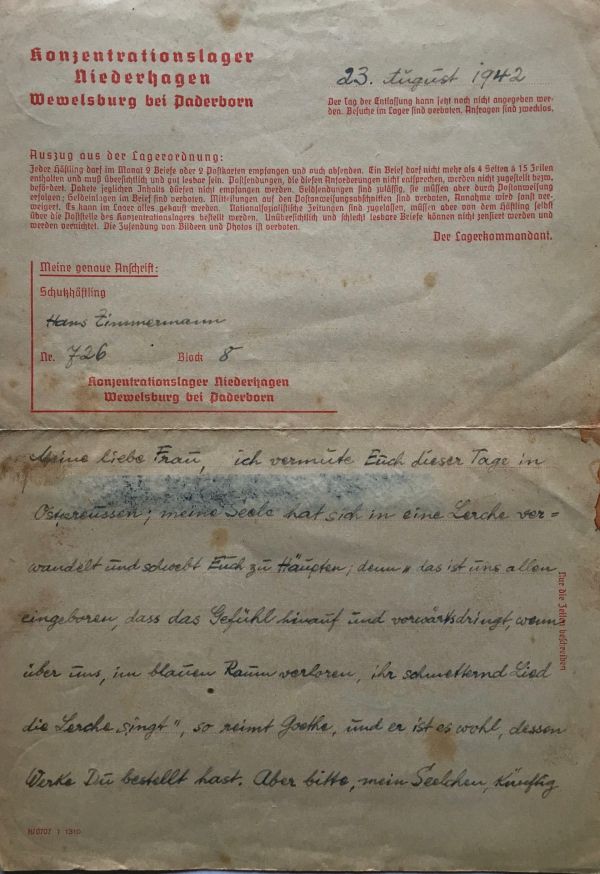 Konzentrationslager
Niederhagen
Wewelsburg bei Paderborn
23. August 1942
Der Tag der Entlassung kann jetzt noch nicht angegeben wer-
den. Besuche im Lager sind verboten. Anfragen sind zwecklos.
Auszug aus der Lagerordnung:
Jeder Häftling darf im Monat 2 Briefe oder 2 Postkarten empfangen und auch absenden. Ein Brief darf nicht mehr als 4 Seiten à 15 Zeilen
enthalten und muß übersichtlich und gut lesbar sein. Postsendungen, die diesen Anforderungen nicht entsprechen, werden nicht zugestellt bezw.
befördert. Pakete jeglichen Inhalts dürfen nicht empfangen werden. Geldsendungen sind zulässig, sie müssen aber durch Postanweisung
erfolgen; Geldeinlagen im Brief sind verboten. Mitteilungen auf den Postanweisungsabschnitten sind verboten, Annahme wird sonst ver-
weigert. Es kann im Lager alles gekauft werden. Nationalsozialistische Zeitungen sind zugelassen, müssen aber von dem Häftling selbst
über die Poststelle des Konzentrationslagers bestellt werden. Unübersichtlich und schlecht lesbare Briefe können nicht zensiert werden und
werden vernichtet. Die Zusendung von Bildern und Photos ist verboten.
Der Lagerkommandant.
Meine genaue Anschrift:
Schutzhäftling
Hans Zimmermann
Nr. 726 Block 8
Konzentrationslager Niederhagen
Wewelsburg bei Paderborn
Meine liebe Frau, ich vermute Euch dieser Tage in
Ostpreussen; meine Seele hat sich in eine Lerche ver=
wandelt und schwebt Euch zu Häupten; denn „das ist uns allen
eingeboren, dass das Gefühl hinauf und vorwärtsdringt, wenn
über uns, im blauen Raum verloren, ihr schmetternd Lied
die Lerche singt", so reimt Goethe, und er ist es wohl, dessen
Werke Du bestellt hast. Aber bitte, mein Seelchen, künftig
Nur die Zeilen beschreiben